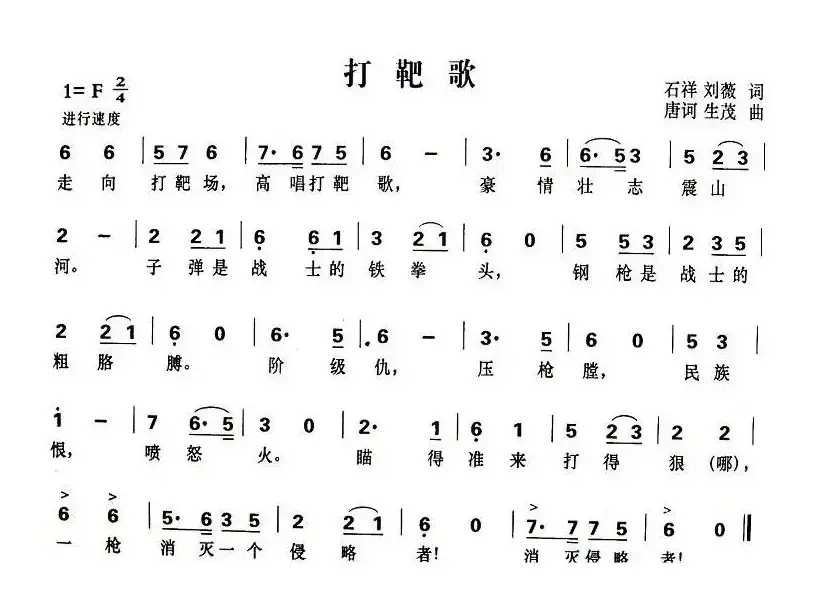 打靶歌
1= F 2/4
石祥 刘薇 词
进行速度
唐诃 生茂 曲
6 6 | 5 7 6 | 7· 6 7 5 | 6 – | 3· 6 | 6· 5 3 | 5 2 3 |
走向 打靶场, 高唱打靶歌, 豪情壮志震山
2 – | 2 2 1 | 6 6 1 | 3 2 1 | 6 0 | 5 5 3 | 2 3 5 |
河。 子弹是战士的铁拳头, 钢枪是战士的
2 2 1 | 6 0 | 6· 5 | 6 – | 3· 5 | 6 0 | 5 3 |
粗胳膊。 阶级仇, 压枪膛, 民族
1 – | 7 6· 5 | 3 0 | 2· 1 | 6 1 | 5 2 3 | 2 2 |
恨, 喷怒火。 瞄得准来打得狠(哪),
6 6 | 5· 6 3 5 | 2 2 1 | 6 0 | 7· 7 7 5 | 6 0 ‖
一枪消灭一个侵略者! 消灭侵略者!